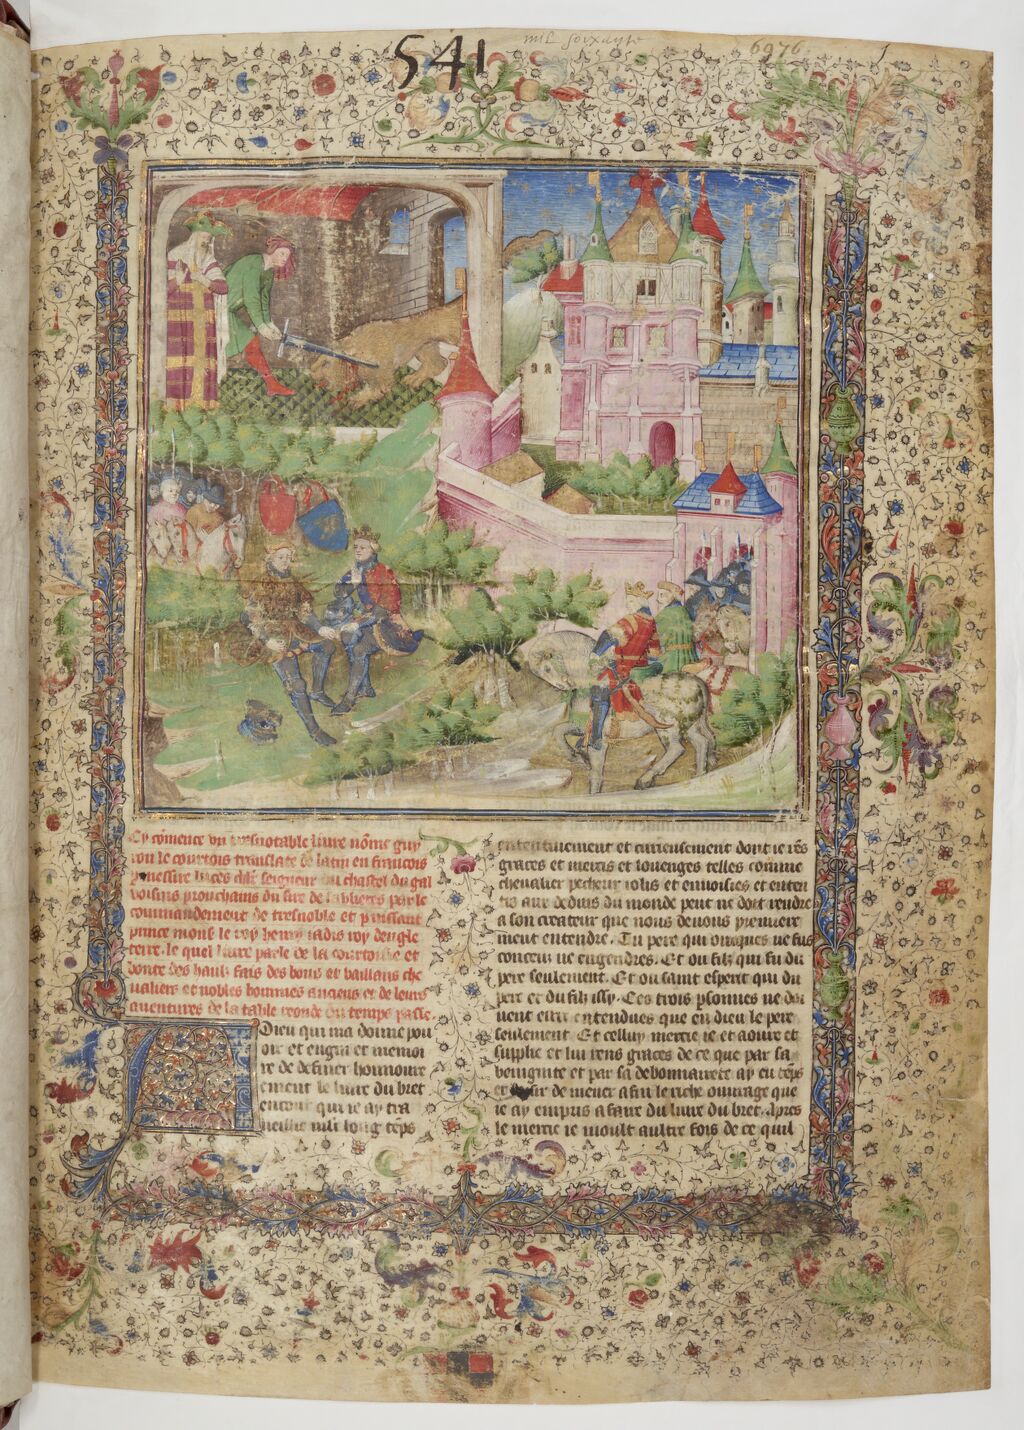 541
mil soixante
6976
1
Cy cōmence vn tresnotable liure nōme guy
ron le courtois translate de latin en francois
messire luces chlr seigneur du chastel du gal
voisins prouchains du sire de sablieres par le
commandement de tresnoble et puissant
prince monſ le roy henry iadis roy dengle
terre. le quel liure parle de la courtoisie et
bonte des haulx fais des bons et vaillans che
ualiers et nobles hommes anciens et de leurs
auentures de la table ronde du temps passe.
Dieu qui ma donne pou
oir et engin et memoi
re de definer honnoure
ement le liure du bret
entour qui ie ay tra
ueillie mlt long tēps
ententiuement et curieusement dont ie rēs
graces et mercis et louenges telles comme
cheualier pecheur iolis et enuoisies et enten
tis aux deduis du monde peut ne doit rendre
a son createur que nous deuons premiere
ment entendre. Tu pere qui onques ne fus
conceu ne engendres. Et ou filz qui fu du
pere seulement. Et ou saint esperit qui du
pere et du filz issy. Ces trois psonnes ne doi
uent estre entendues que en dieu le pere
seulement. Et celluy mercie ie et aoure et
supplie et lui rens graces de ce que par sa
benignite et par sa debonnairete ay eu tēps
et loisir de mener a fin le riche ouurage que
ie ay empris a faire du liure du bret. Apres
le mercie ie moult aultre fois de ce quil